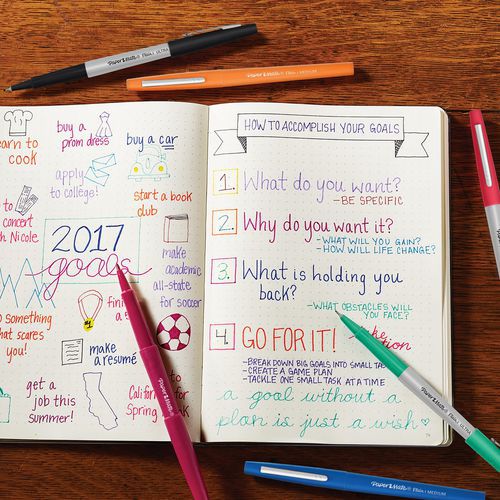 Paper Mate Flair. ULTRA
Paper Mate Flair. MEDIUM
learn to
cook
buy a
prom dress
buy a car
apply
to college!
start a book
club
concert
with Nicole
2017
goals
make
academic
all-state
for soccer
#1
something
that scares
you!
make
a resumé
get a
job this
summer!
Spring
HOW TO ACCOMPLISH YOUR GOALS
1. What do you want?
- BE SPECIFIC
2. Why do you want it?
- WHAT WILL YOU GAIN?
- HOW WILL LIFE CHANGE?
3. What is holding you
back?
- WHAT OBSTACLES WILL
YOU FACE?
4. GO FOR IT!
- BREAK DOWN BIG GOALS INTO SMALL
- CREATE A GAME PLAN
- TACKLE ONE SMALL TASK AT A TIME
a goal without a
plan is just a wish
Paper Mate
Paper Mate Flair. MEDIUM